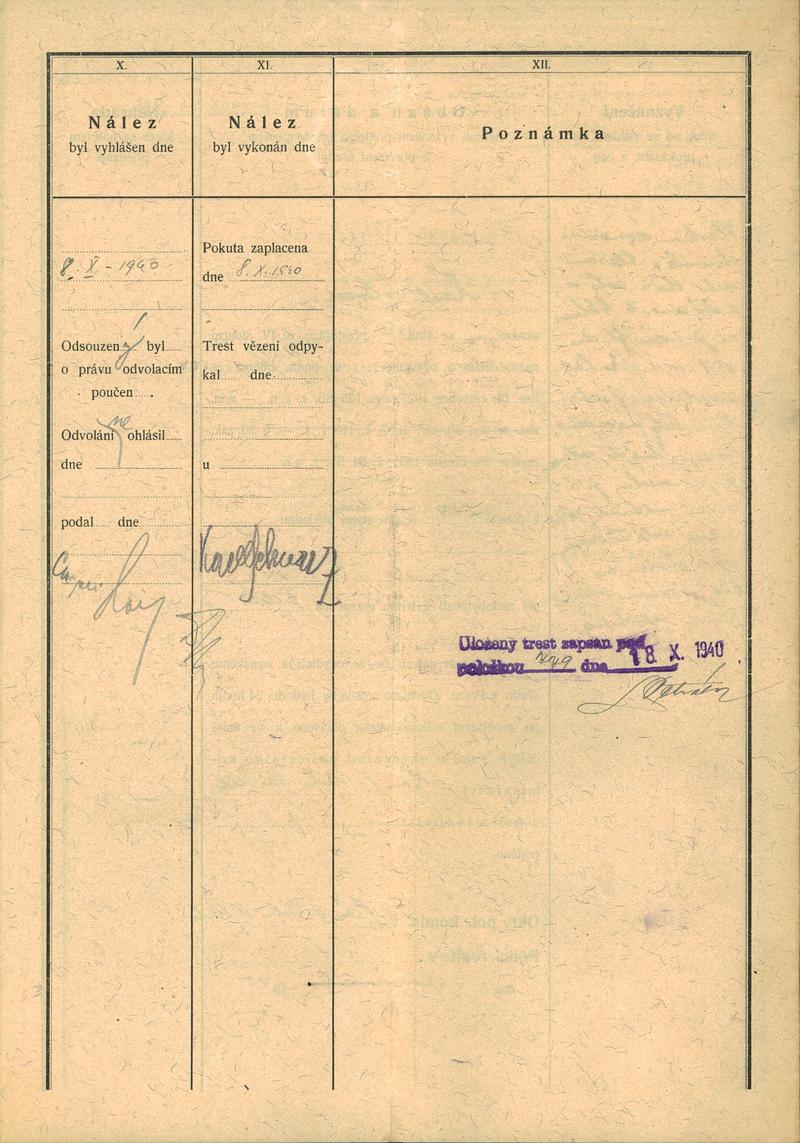 X.
Nález
byl vyhlášen dne
8. X - 1940
Odsouzený byl
o právu odvolacím
poučen
Odvolání neohlásil
dne
podal dne
XI.
Nález
byl vykonán dne
Pokuta zaplacena
dne 8. X. 1940
Trest vězení odpy-
kal dne
u
XII.
Poznámka
Uložený trest zapsán pod
položkou dne 18. X. 1940